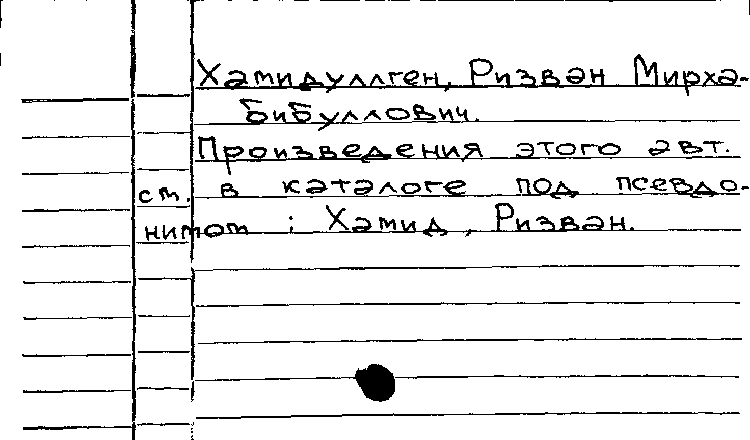 Хамидуллген, Ризван Мирха-
бибуллович.
Произведения этого авт.
см. в каталоге под псевдо-
нимом : Хамид, Ризван.